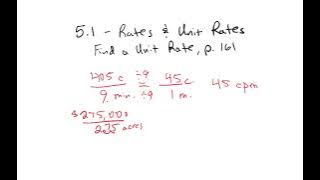 5.1 - Rates & Unit Rates
Find a Unit Rate, p. 161
405 c ÷9 = 45 c 45 cpm
9 min. ÷9 1 m.
$275,000
2.75 acres